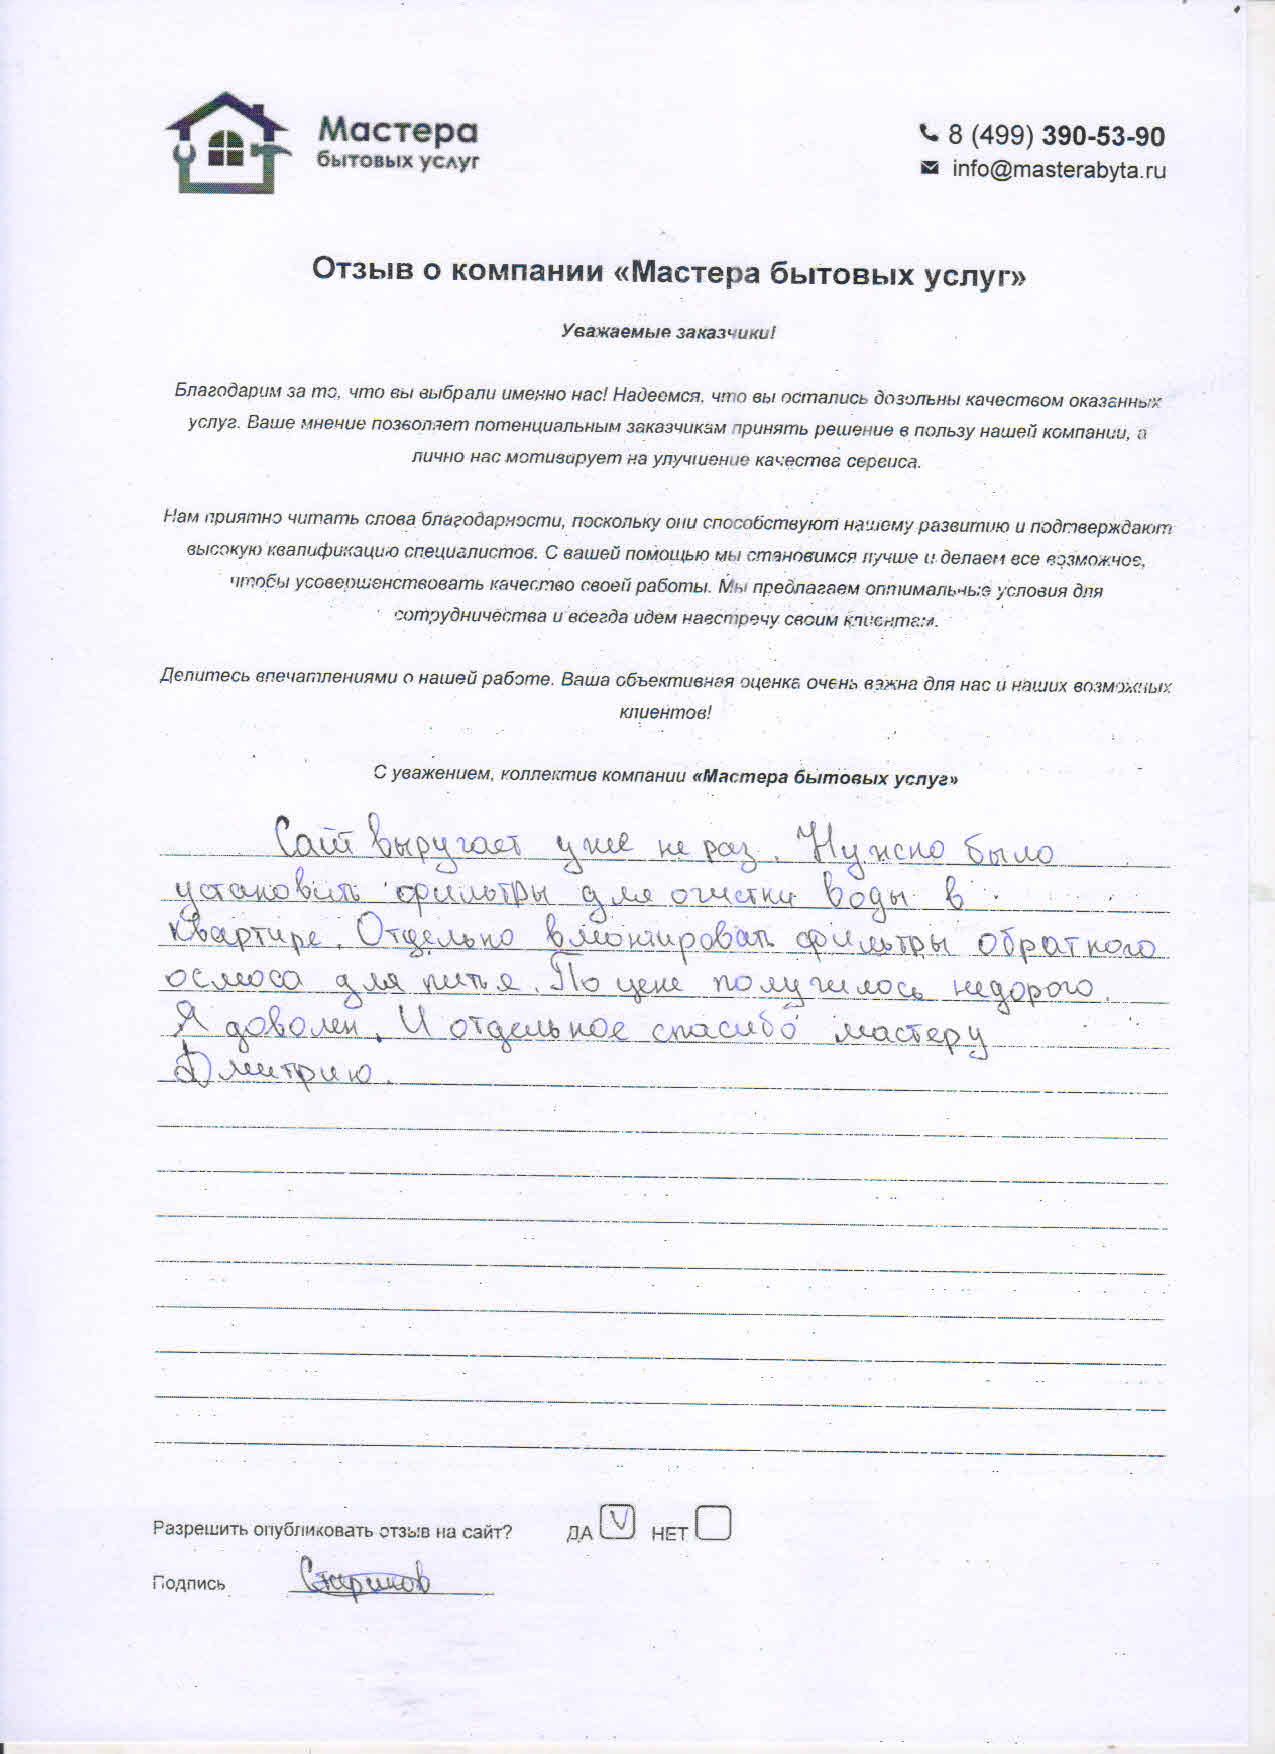 Мастера
бытовых услуг
8 (499) 390-53-90
info@masterabyta.ru
Отзыв о компании «Мастера бытовых услуг»
Уважаемые заказчики!
Благодарим за то, что вы выбрали именно нас! Надеемся, что вы остались довольны качеством оказанных
услуг. Ваше мнение позволяет потенциальным заказчикам принять решение в пользу нашей компании, а
лично нас мотивирует на улучшение качества сервиса.
Нам приятно читать слова благодарности, поскольку они способствуют нашему развитию и подтверждают
высокую квалификацию специалистов. С вашей помощью мы становимся лучше и делаем все возможное,
чтобы усовершенствовать качество своей работы. Мы предлагаем оптимальные условия для
сотрудничества и всегда идем навстречу своим клиентам.
Делитесь впечатлениями о нашей работе. Ваша объективная оценка очень важна для нас и наших возможных
клиентов!
С уважением, коллектив компании «Мастера бытовых услуг»
Сайт выручает уже не раз. Нужно было
установить фильтры для очистки воды в
квартире. Отдельно вмонтировать фильтры обратного
осмоса для питья. По цене получилось недорого.
Я доволен. И отдельное спасибо мастеру
Дмитрию.
Разрешить опубликовать отзыв на сайт? ДА V НЕТ
Подпись Стариков